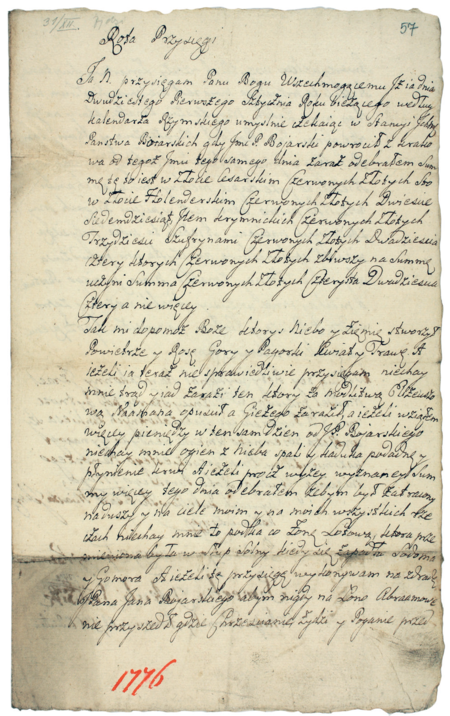 31/XII.
57
Rota Przysięgi
Ja N. przysięgam Panu Bogu Wszechmogącemu Iż ia dnia
Dwudziestego Pierwszego Stycznia Roku bieżącego według
kalendarza Rzymskiego umyslnie czekaiąc w Stancyi
Państwa Boiarskich gdy Jmć P. Bojarski powrocił z krako
wa od tegoż Jmci tego samego dnia zaraz odebrałem Sum
mę tę to iest w Złocie Cesarskim Czerwonych Złotych Sto
w Złocie Hollenderskim Czerwonych Złotych Dwiescie
Siedemdziesiąt Item krymnickich Czerwonych Złotych
Trzydziesci Czerwonych Złotych Dwadziescia
cztery ktorych Czerwonych Złotych zbiwszy na Summę
uczyni Summa Czerwonych Złotych Czterysta Dwadziescia
Cztery a nie więcey.
Tak mi dopomoż Boże ktoryś Niebo y Ziemię stworzył
Powietrze y Rosę Gory y Pagorki kwiat y Trawę A
ieżeli ia teraz nie sprawiedliwie przysięgam niechay
mnie trąd y iad zarazi ten ktory za modlitwą Elizeuszo
wą Naamana opuscił a Giezego zaraził, a ieżeli wziąłem
więcey pieniędzy w ten sam dzien od JP. Bojarskiego
niechay mnie ogien z Nieba spali kaduka posiądnie y
płynienie krwie A ieżeli procz wyżey wyznaney Sum
my więcey tego dnia odebrałem żebym był zatracony
na duszy y na ciele moim y na moich wszystkich rze
czach niechay mnie to potka co Zonę Lotową, ktora prze
mieniona była w Słup solny kiedy się zapadła Sodoma
y Gomora A ieżeli tę przysięgę wykonywam na zdradę
Pana Jana Bojarskiego abym nigdy na Łono Abraamowe
nie przyszedł gdzie Chrzescianie Żydzi y Poganie przed
1776